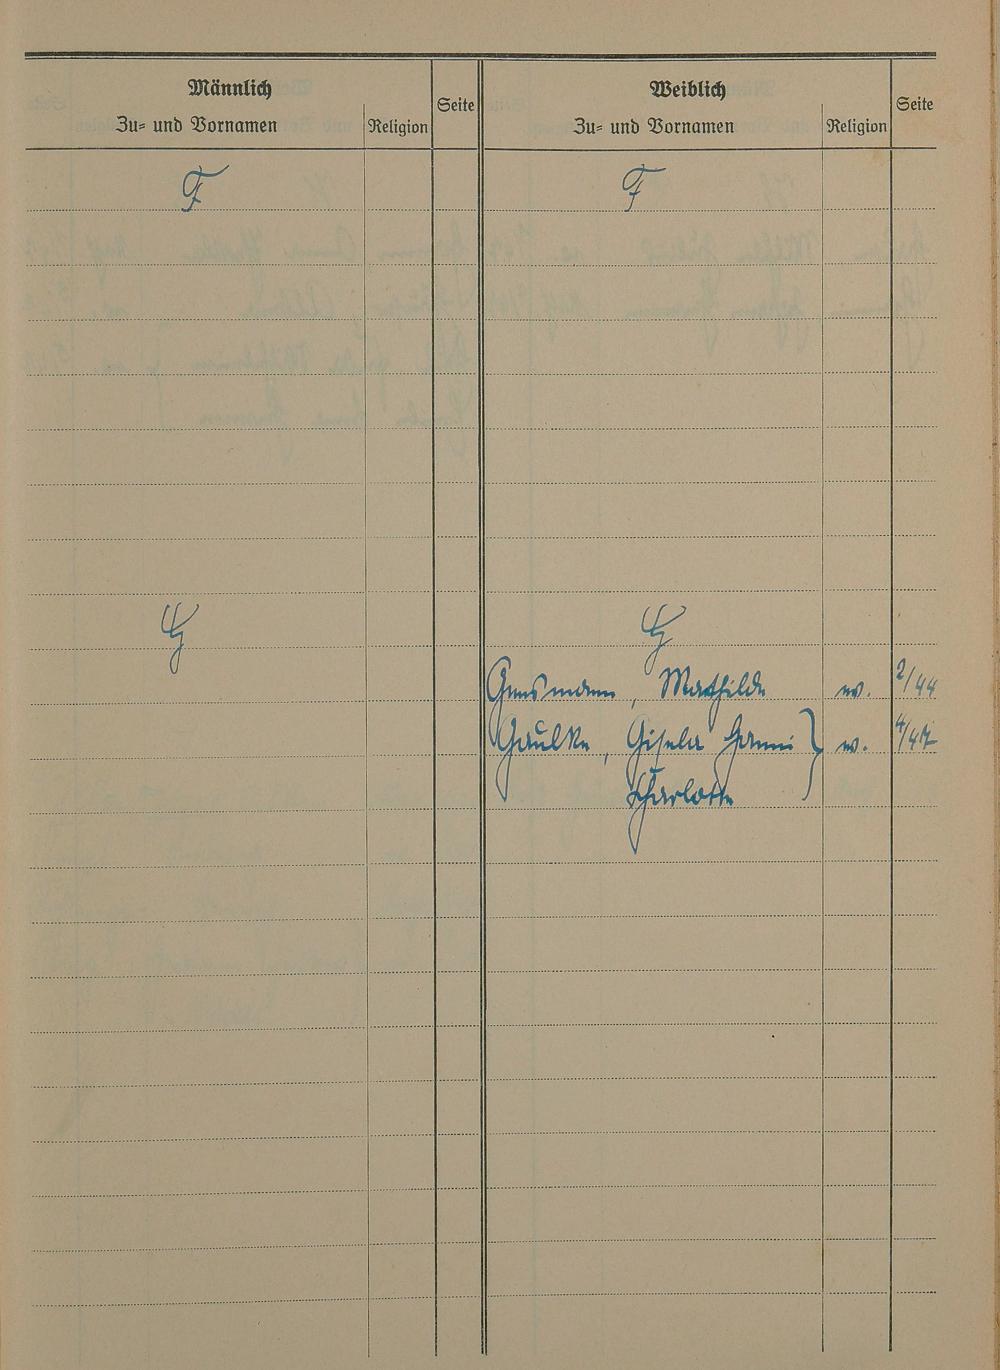 Männlich
Zu- und Vornamen
Religion
Seite
Weiblich
Zu- und Vornamen
Religion
Seite
F
F
G
G
Gensmann, Mathilde ev. 2/44
Gaulke, Gisela Hanni } ev. 4/47
Charlotte